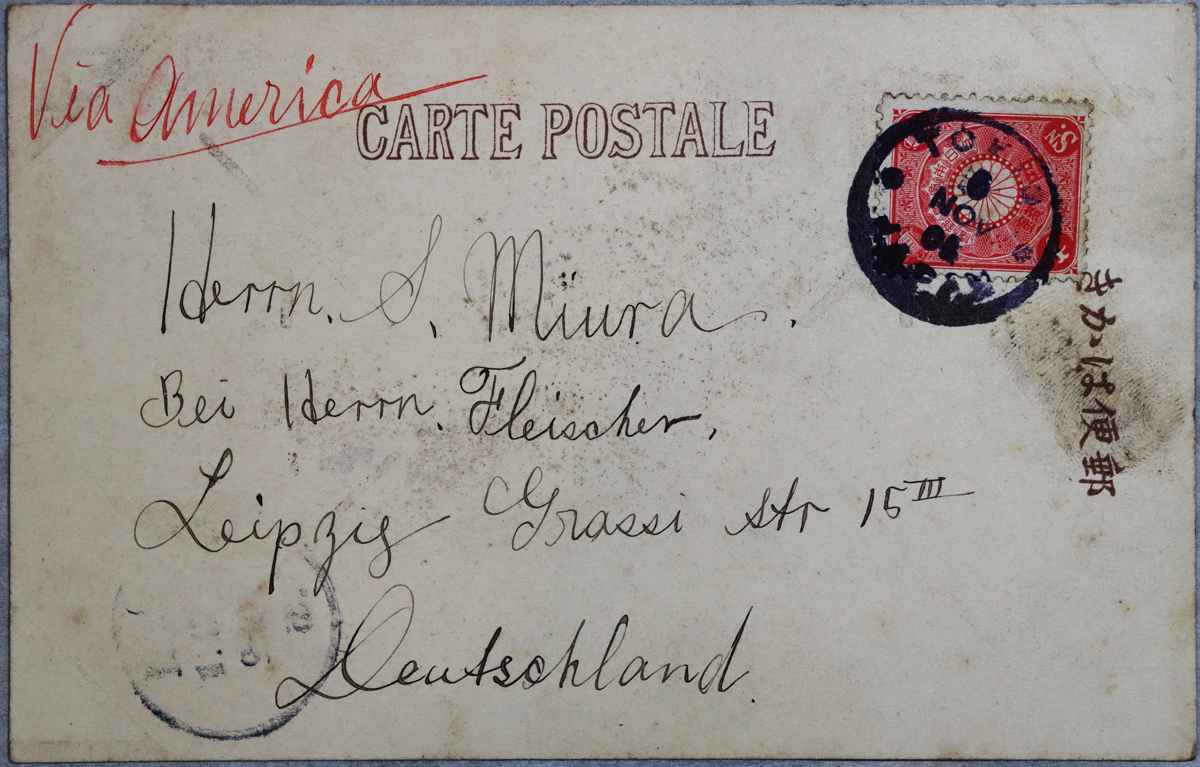 Via America
CARTE POSTALE
TOKIO
NOV
04
JAPAN
Herrn. S. Miura.
Bei Herrn. Fleischer,
Leipzig Grassi str 15 III
Deutschland.
郵便はかき